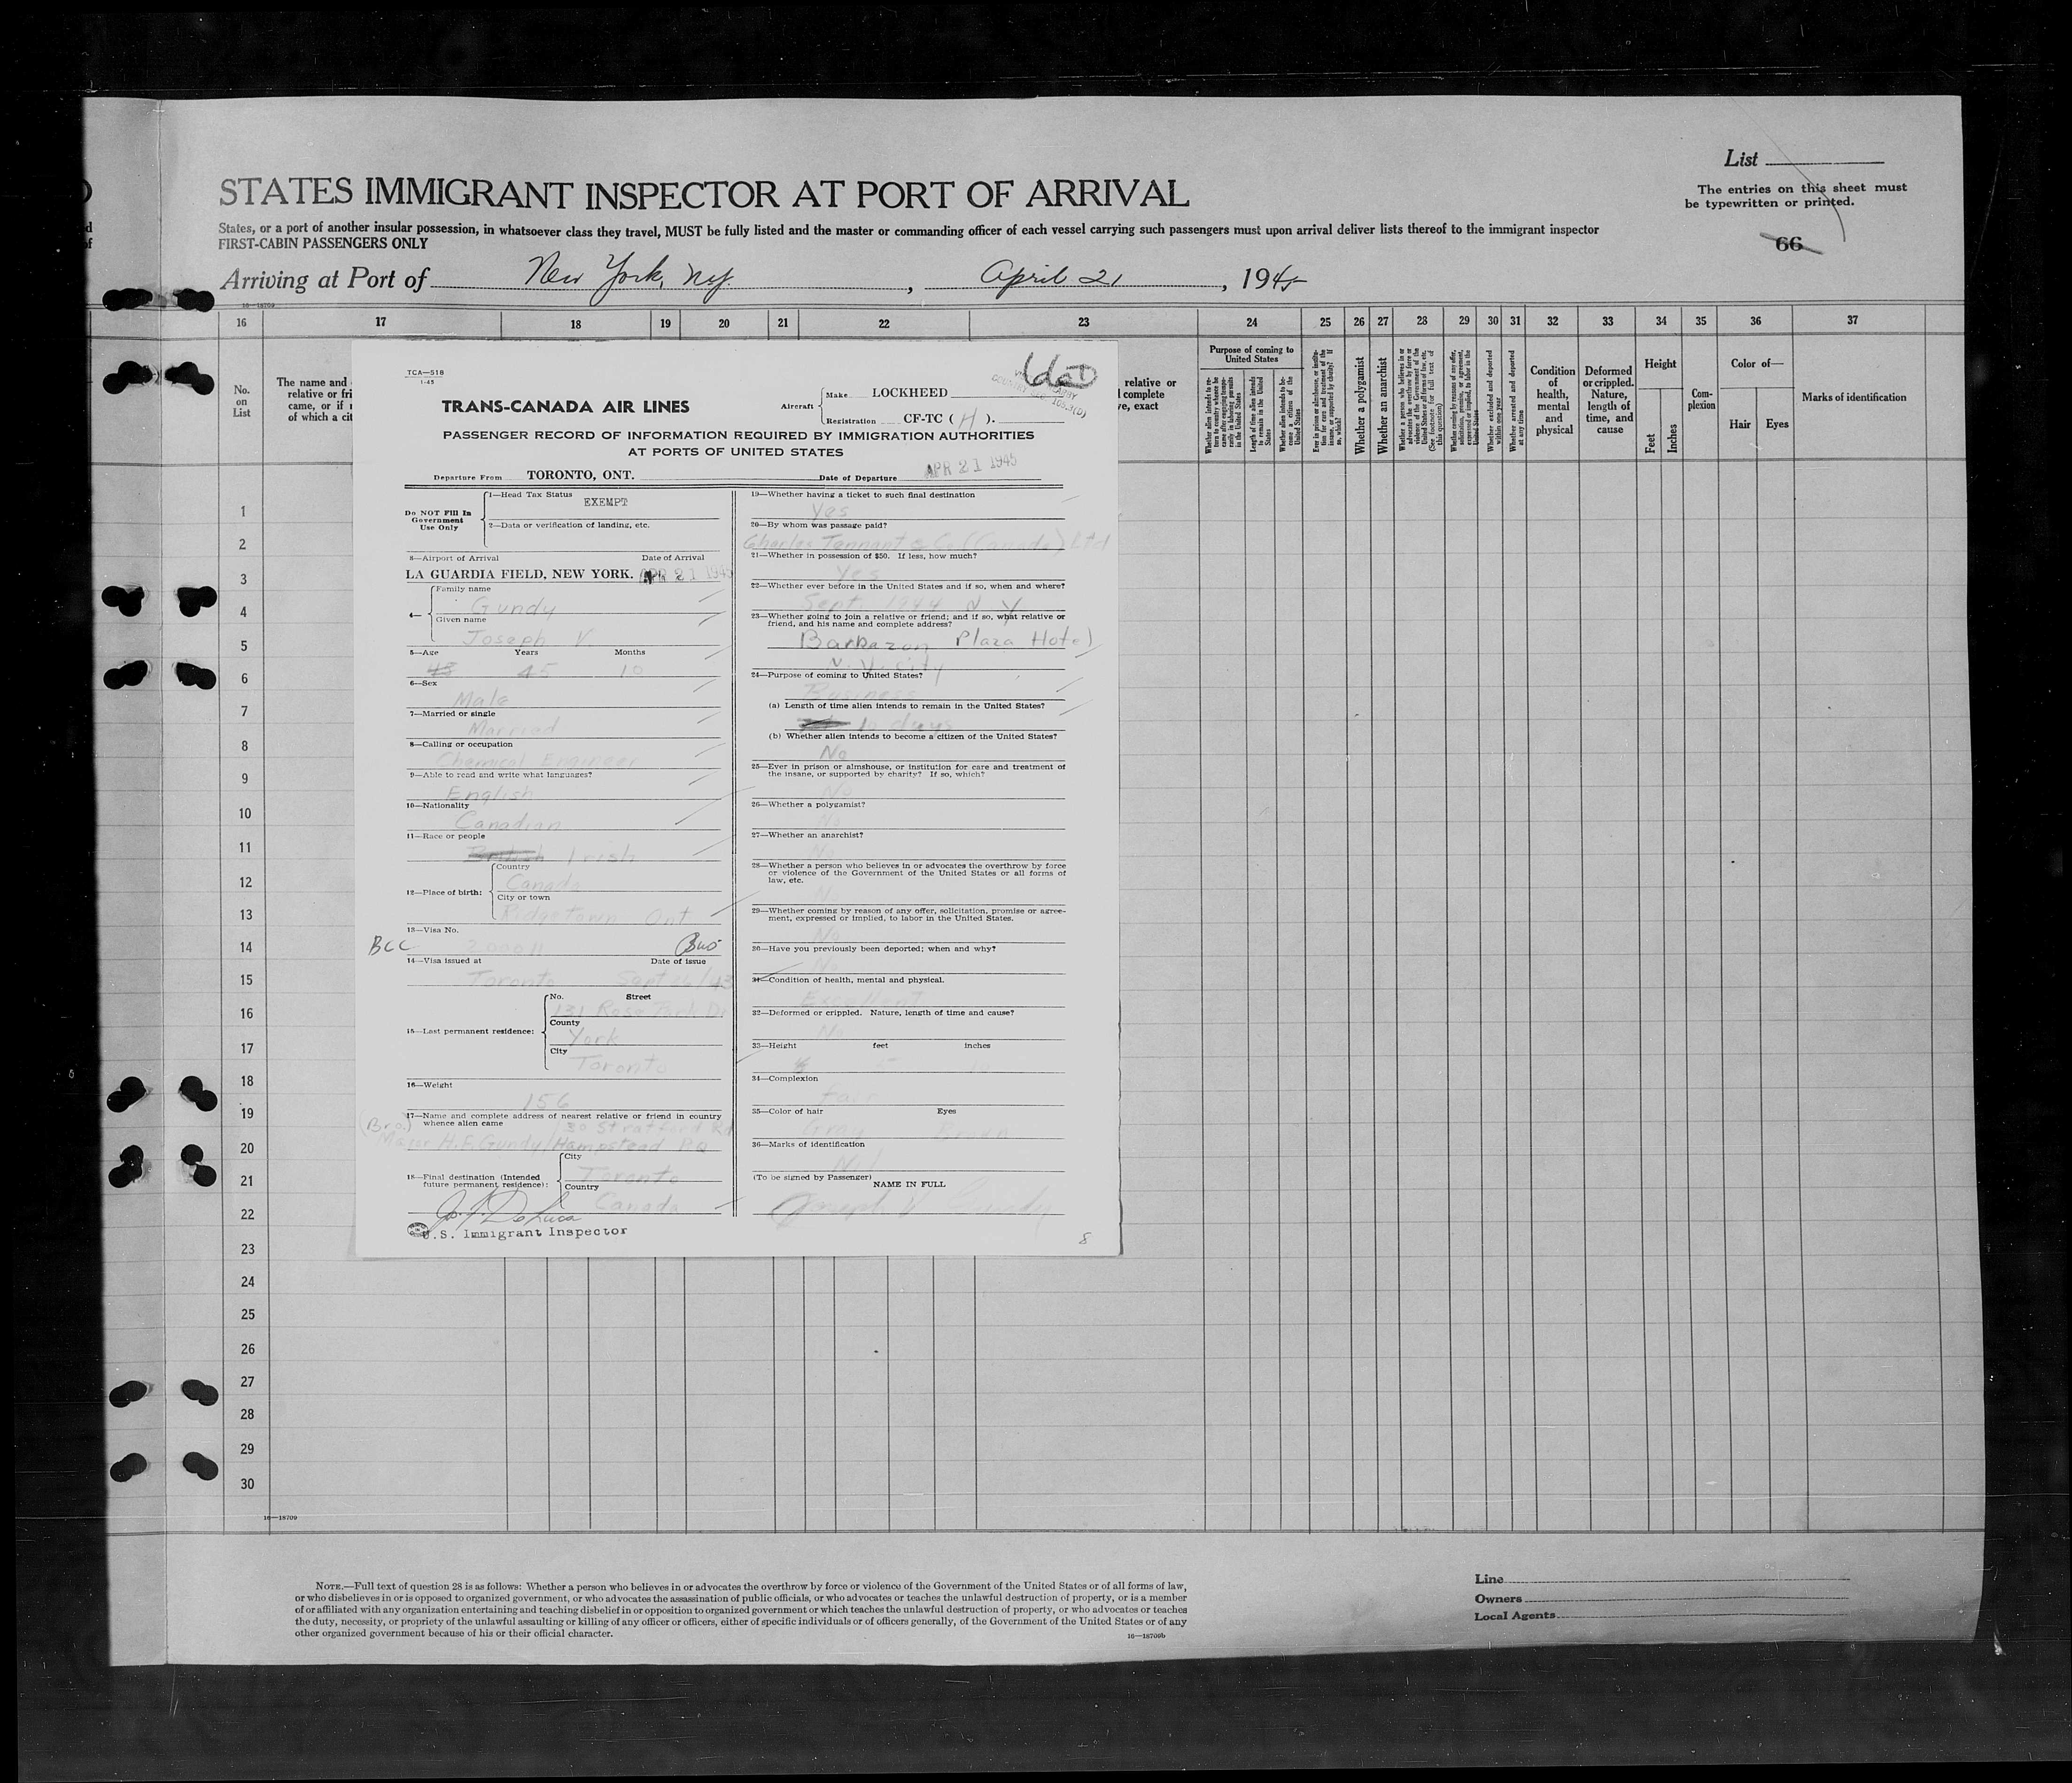 List
The entries on this sheet must
be typewritten or printed.
66
STATES IMMIGRANT INSPECTOR AT PORT OF ARRIVAL
States, or a port of another insular possession, in whatsoever class they travel, MUST be fully listed and the master or commanding officer of each vessel carrying such passengers must upon arrival deliver lists thereof to the immigrant inspector
FIRST-CABIN PASSENGERS ONLY
Arriving at Port of New York, N.Y. , April 21 , 1945
16—18709
16 17 18 19 20 21 22 23 24 25 26 27 28 29 30 31 32 33 34 35 36 37
No. on List
The name and
relative or fri
came, or if
of which a cit
relative or
complete
exact
Purpose of coming to United States
Whether a polygamist
Whether an anarchist
Condition of health, mental and physical
Deformed or crippled. Nature, length of time, and cause
Height
Feet
Inches
Complexion
Color of—
Hair
Eyes
Marks of identification
TCA—518
1-45
TRANS-CANADA AIR LINES
Aircraft
Make LOCKHEED
Registration CF-TC ( H ).
PASSENGER RECORD OF INFORMATION REQUIRED BY IMMIGRATION AUTHORITIES
AT PORTS OF UNITED STATES
Departure From TORONTO, ONT. Date of Departure APR 21 1945
Do NOT Fill In
Government
Use Only
1—Head Tax Status
EXEMPT
2—Data or verification of landing, etc.
3—Airport of Arrival Date of Arrival
LA GUARDIA FIELD, NEW YORK. APR 21 1945
4— Family name
Gundy
Given name
Joseph V.
5—Age Years Months
45 10
6—Sex
Male
7—Married or single
Married
8—Calling or occupation
Chemical Engineer
9—Able to read and write what languages?
English
10—Nationality
Canadian
11—Race or people
British Irish
12—Place of birth:
Country
Canada
City or town
Ridgetown Ont
13—Visa No.
BCC 200011 Bus
14—Visa issued at Date of issue
Toronto Sept
15—Last permanent residence:
No. Street
131 Rose Park Dr
County
York
City
Toronto
16—Weight
156
17—Name and complete address of nearest relative or friend in country
whence alien came
(Bro.) 30 Stratford Rd
Major H.F. Gundy Hampstead P.Q
18—Final destination (Intended
future permanent residence):
City
Toronto
Country
Canada
U.S. Immigrant Inspector
19—Whether having a ticket to such final destination
Yes
20—By whom was passage paid?
Charles Tennant & Co (Canada) Ltd
21—Whether in possession of $50. If less, how much?
Yes
22—Whether ever before in the United States and if so, when and where?
Sept. 1944 N Y
23—Whether going to join a relative or friend; and if so, what relative or
friend, and his name and complete address?
Barbazon Plaza Hotel
N. Y. City
24—Purpose of coming to United States?
Business
(a) Length of time alien intends to remain in the United States?
10 days
(b) Whether alien intends to become a citizen of the United States?
No
25—Ever in prison or almshouse, or institution for care and treatment of
the insane, or supported by charity? If so, which?
No
26—Whether a polygamist?
No
27—Whether an anarchist?
No
28—Whether a person who believes in or advocates the overthrow by force
or violence of the Government of the United States or all forms of
law, etc.
No
29—Whether coming by reason of any offer, solicitation, promise or agree-
ment, expressed or implied, to labor in the United States.
No
30—Have you previously been deported; when and why?
No
31—Condition of health, mental and physical.
Excellent
32—Deformed or crippled. Nature, length of time and cause?
No
33—Height feet inches
34—Complexion
Fair
35—Color of hair Eyes
Gray Brown
36—Marks of identification
Nil
(To be signed by Passenger)
NAME IN FULL
Joseph V Gundy
8
1
2
3
4
5
6
7
8
9
10
11
12
13
14
15
16
17
18
19
20
21
22
23
24
25
26
27
28
29
30
16—18709
NOTE.—Full text of question 28 is as follows: Whether a person who believes in or advocates the overthrow by force or violence of the Government of the United States or of all forms of law,
or who disbelieves in or is opposed to organized government, or who advocates the assassination of public officials, or who advocates or teaches the unlawful destruction of property, or is a member
of or affiliated with any organization entertaining and teaching disbelief in or opposition to organized government or which teaches the unlawful destruction of property, or who advocates or teaches
the duty, necessity, or propriety of the unlawful assaulting or killing of any officer or officers, either of specific individuals or of officers generally, of the Government of the United States or of any
other organized government because of his or their official character.
16—18709b
Line
Owners
Local Agents